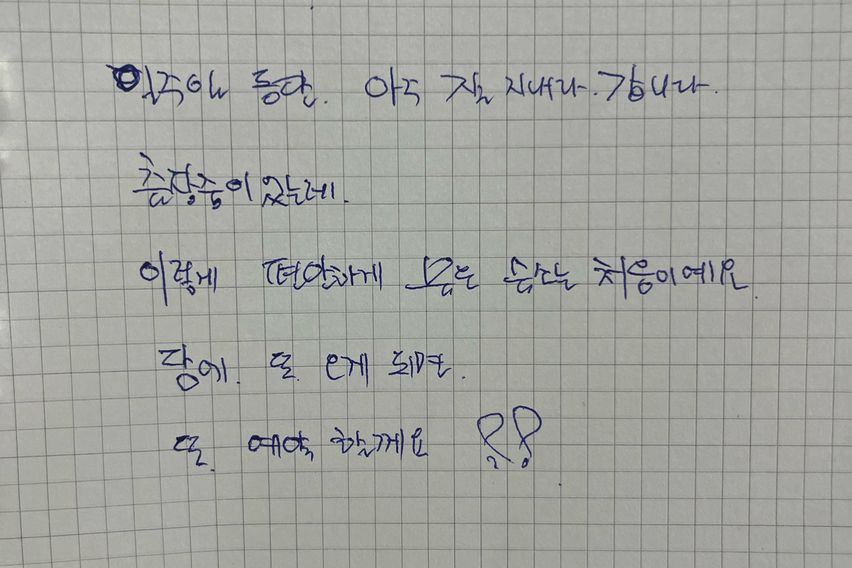 일주일 동안. 아주 잘 지내다. 갑니다.
출장중이 있는데.
이렇게 편안하게 묵은 숙소는 처음이예요.
담에. 또 오게 되면.
또. 예약 할게요